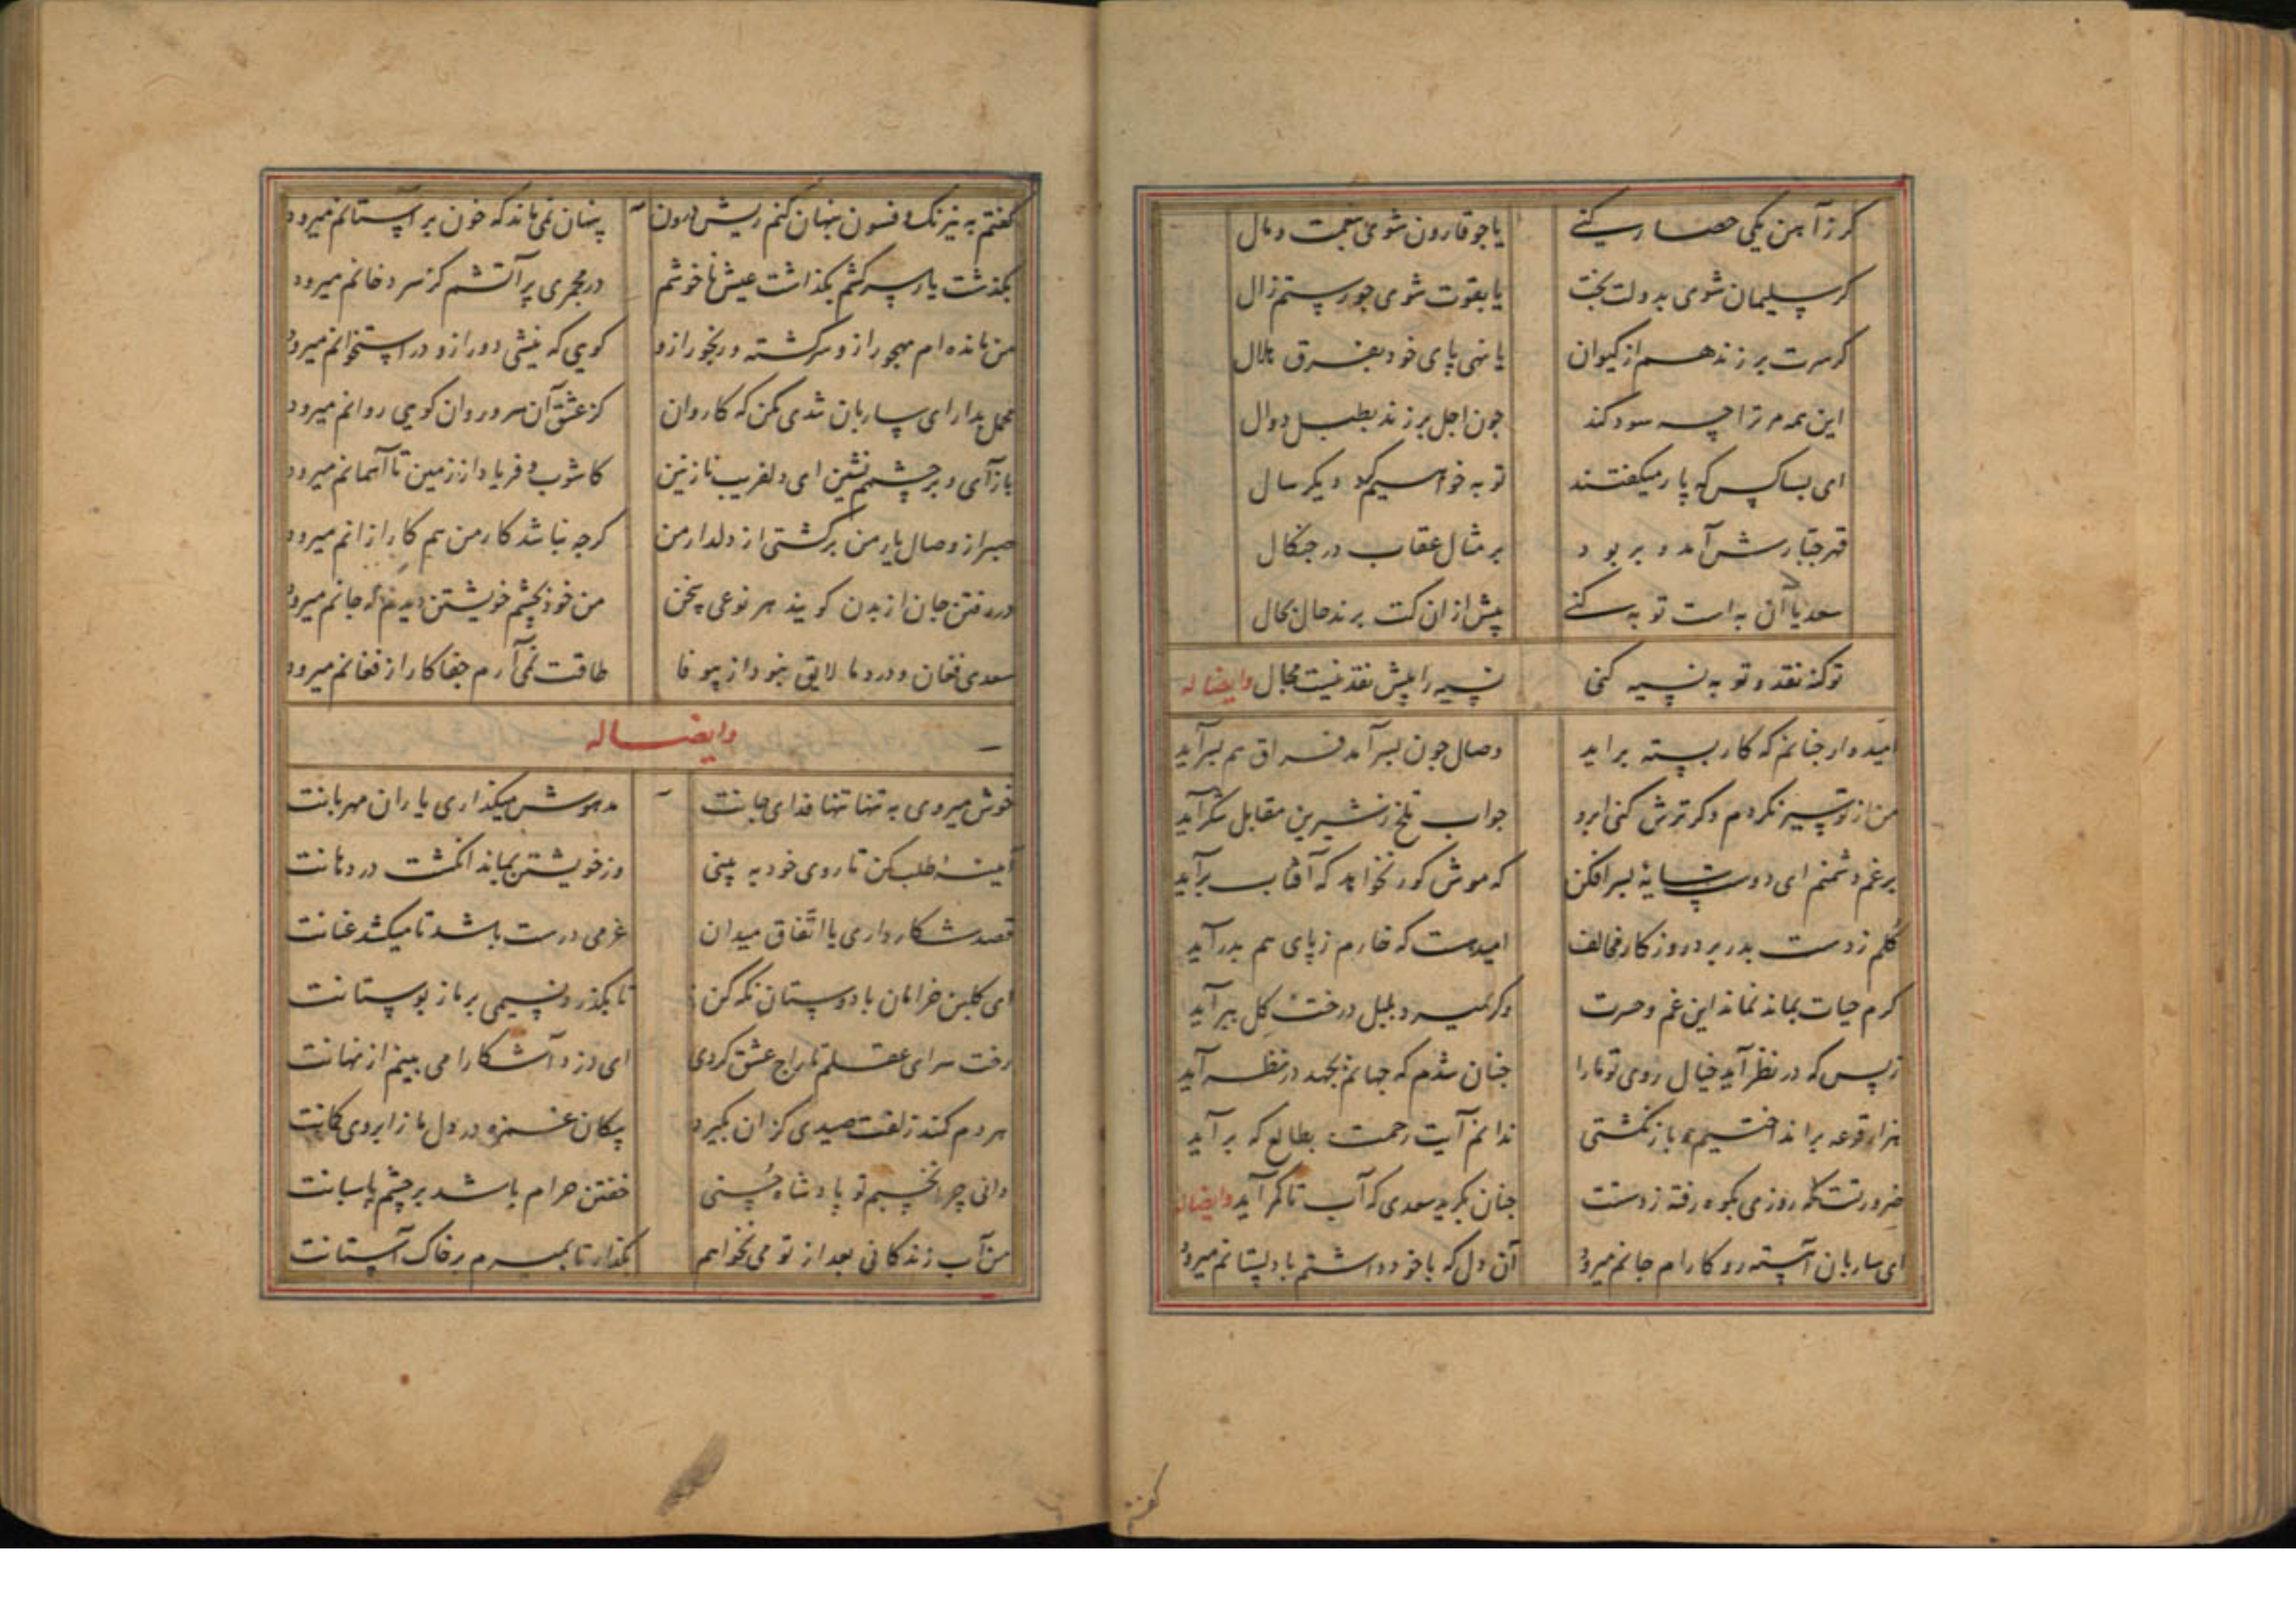 کر ز آهن یکی حصار کنے یا جو قارون شوی بنعمت و مال
کر سلیمان شوی بدولت بخت یا بقوت شوی جو رستم زال
کر سرت بر زند هم از کیوان یا نهی پای خود بفرق هلال
این همه مر ترا چه سود کند جون اجل بر زند بطبل دوال
ای بسا کس که پار میکفتند توبه خواهیم کرد دیکر سال
قهر جبارش آمد و بربود بر مثال عقاب در جنکال
سعدیا آن به است توبه کنے پیش از ان کت برند حال بحال
تو کنه نقد و توبه نسیه کنی نسیه را پیش نقد نیست مجال وایضاله
امیدوار جنانم که کار بسته براید وصال جون بسر آمد فراق هم بسر آید
من از تو سیر نکردم وکر ترش کنی ابرو جواب تلخ ز شیرین مقابل شکر آید
برغم دشمنم ای دوست سایهٔ بسر افکن که موش کور نخواهد که آفتاب برآید
کلم ز دست بدر برد روزکار مخالف امیدست که خارم ز پای هم بدر آید
کرم حیات بماند نماند این غم و حسرت وکر نمیرد بلبل درخت کل ببر آید
ز بس که در نظر آید خیال روی تو مارا جنان شدم که جهانم بجهد در نظر آید
هزار قرعه براند اختیم و باز نکشتی ندانم آیت رحمت بطالع که بر آید
ضرورتست که روزی بکوه رفته ز دستت جنان بکرید سعدی که آب تا کمر آید وایضاله
ای ساربان آهسته رو کارام جانم میرود آن دل که با خود داشتم با دلستانم میرود
کفتم
کفتم به نیرنک و فسون پنهان کنم ریش درون پنهان نمی ماند که خون بر آستانم میرود
بکذشت یار سرکشم بکذاشت عیش ناخوشم در مجمری پر آتشم کز سر دخانم میرود
من مانده ام مهجور ازو سرکشته و رنجور ازو کویی که نیشی دور ازو در استخوانم میرود
محمل بدار ای ساربان تندی مکن که کاروان کز عشق آن سرو روان کویی روانم میرود
باز آی و بر چشمم نشین ای دلفریب نازنین کاشوب و فریاد از زمین تا آسمانم میرود
صبر از وصال یار من برکشتی از دلدار من کرجه نباشد کار من هم کار از انم میرود
در رفتن جان از بدن کویند هر نوعی سخن من خود بچشم خویشتن دیدم که جانم میرود
سعدی فغان و درد ما لایق نبود از بیوفا طاقت نمی آرم جفا کار از فغانم میرود
وایضاله
خوش میروی به تنها تنها فدای جانت مدهوش میکذاری یاران مهربانت
آیینه طلب کن تا روی خود به بینی وز خویشتن بماند انکشت در دهانت
قصد شکار داری یا اتّفاق میدان عزمی درست باشد تا میکشد عنانت
ای کلبن خرامان با دوستان نکه کن تا بکذرد نسیمی بر ما ز بوستانت
رخت سرای عقلم تاراج عشق کردی ای دزد آشکارا می بینم از نهانت
هر دم کمند زلفت صیدی کز ان بکیرد پیکان غمزه در دل ما ز ابروی کمانت
دانی چرا نخسبم تو پادشاه حُسنی خفتن حرام باشد بر چشم پاسبانت
من آب زندکانی بعد از تو می نخواهم بکذار تا بمیرم بر خاک آستانت